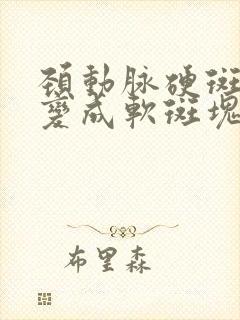 頸動脉硬斑
變成軟斑塊
布里森